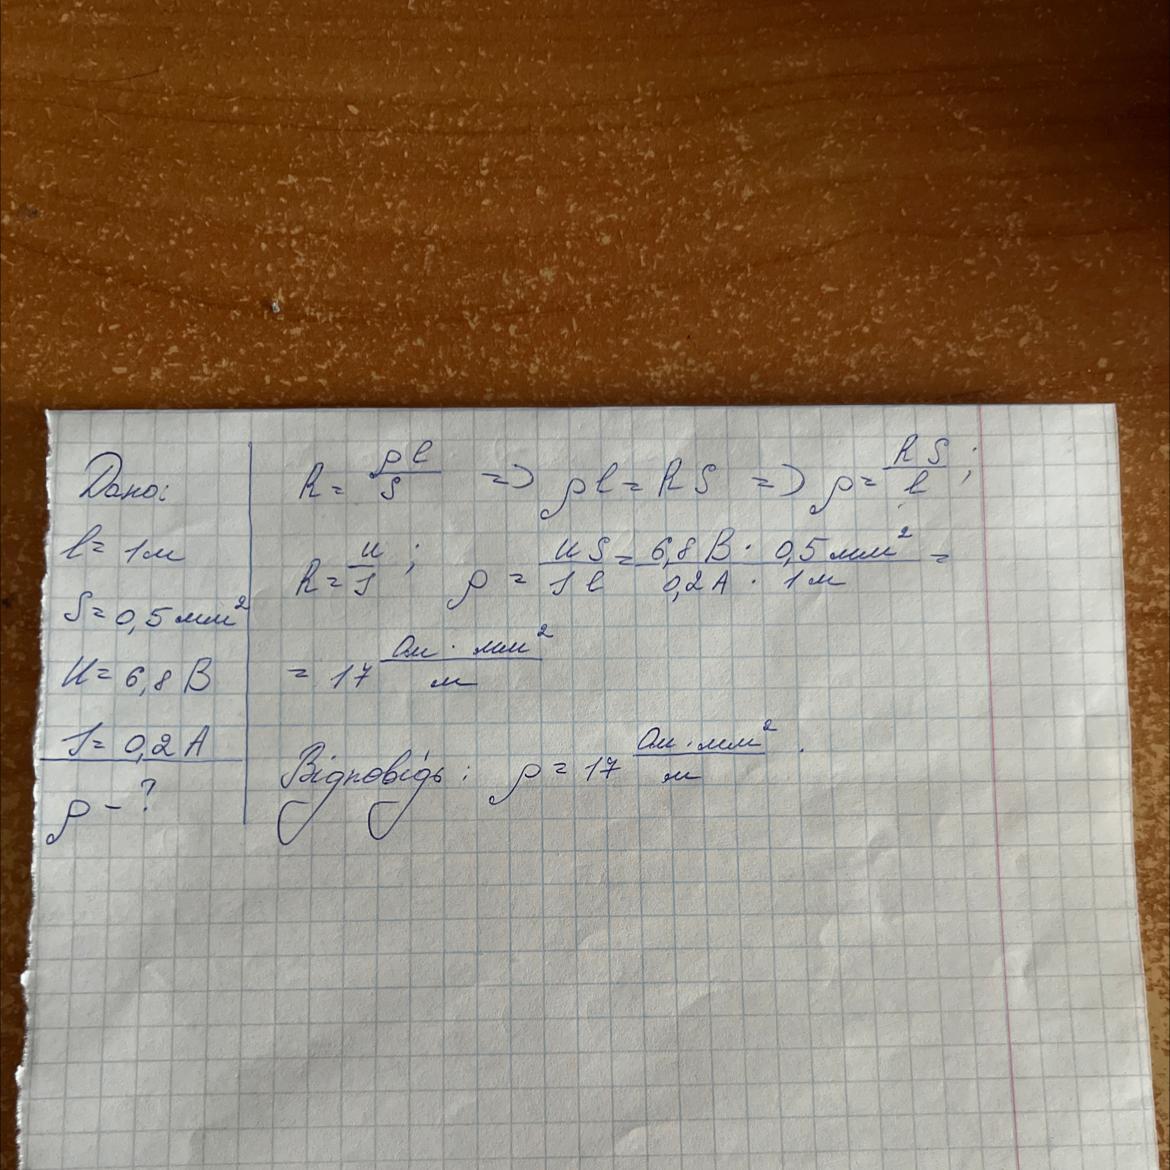 Дано:
l = 1 м
S = 0,5 мм²
U = 6,8 В
I = 0,2 А
ρ - ?
R = ρl/S => ρl = RS => ρ = RS/l ;
R = U/I ; ρ = US/Il = 6,8 В · 0,5 мм²/0,2 А · 1 м =
= 17 Ом · мм²/м
Відповідь : ρ = 17 Ом · мм²/м .